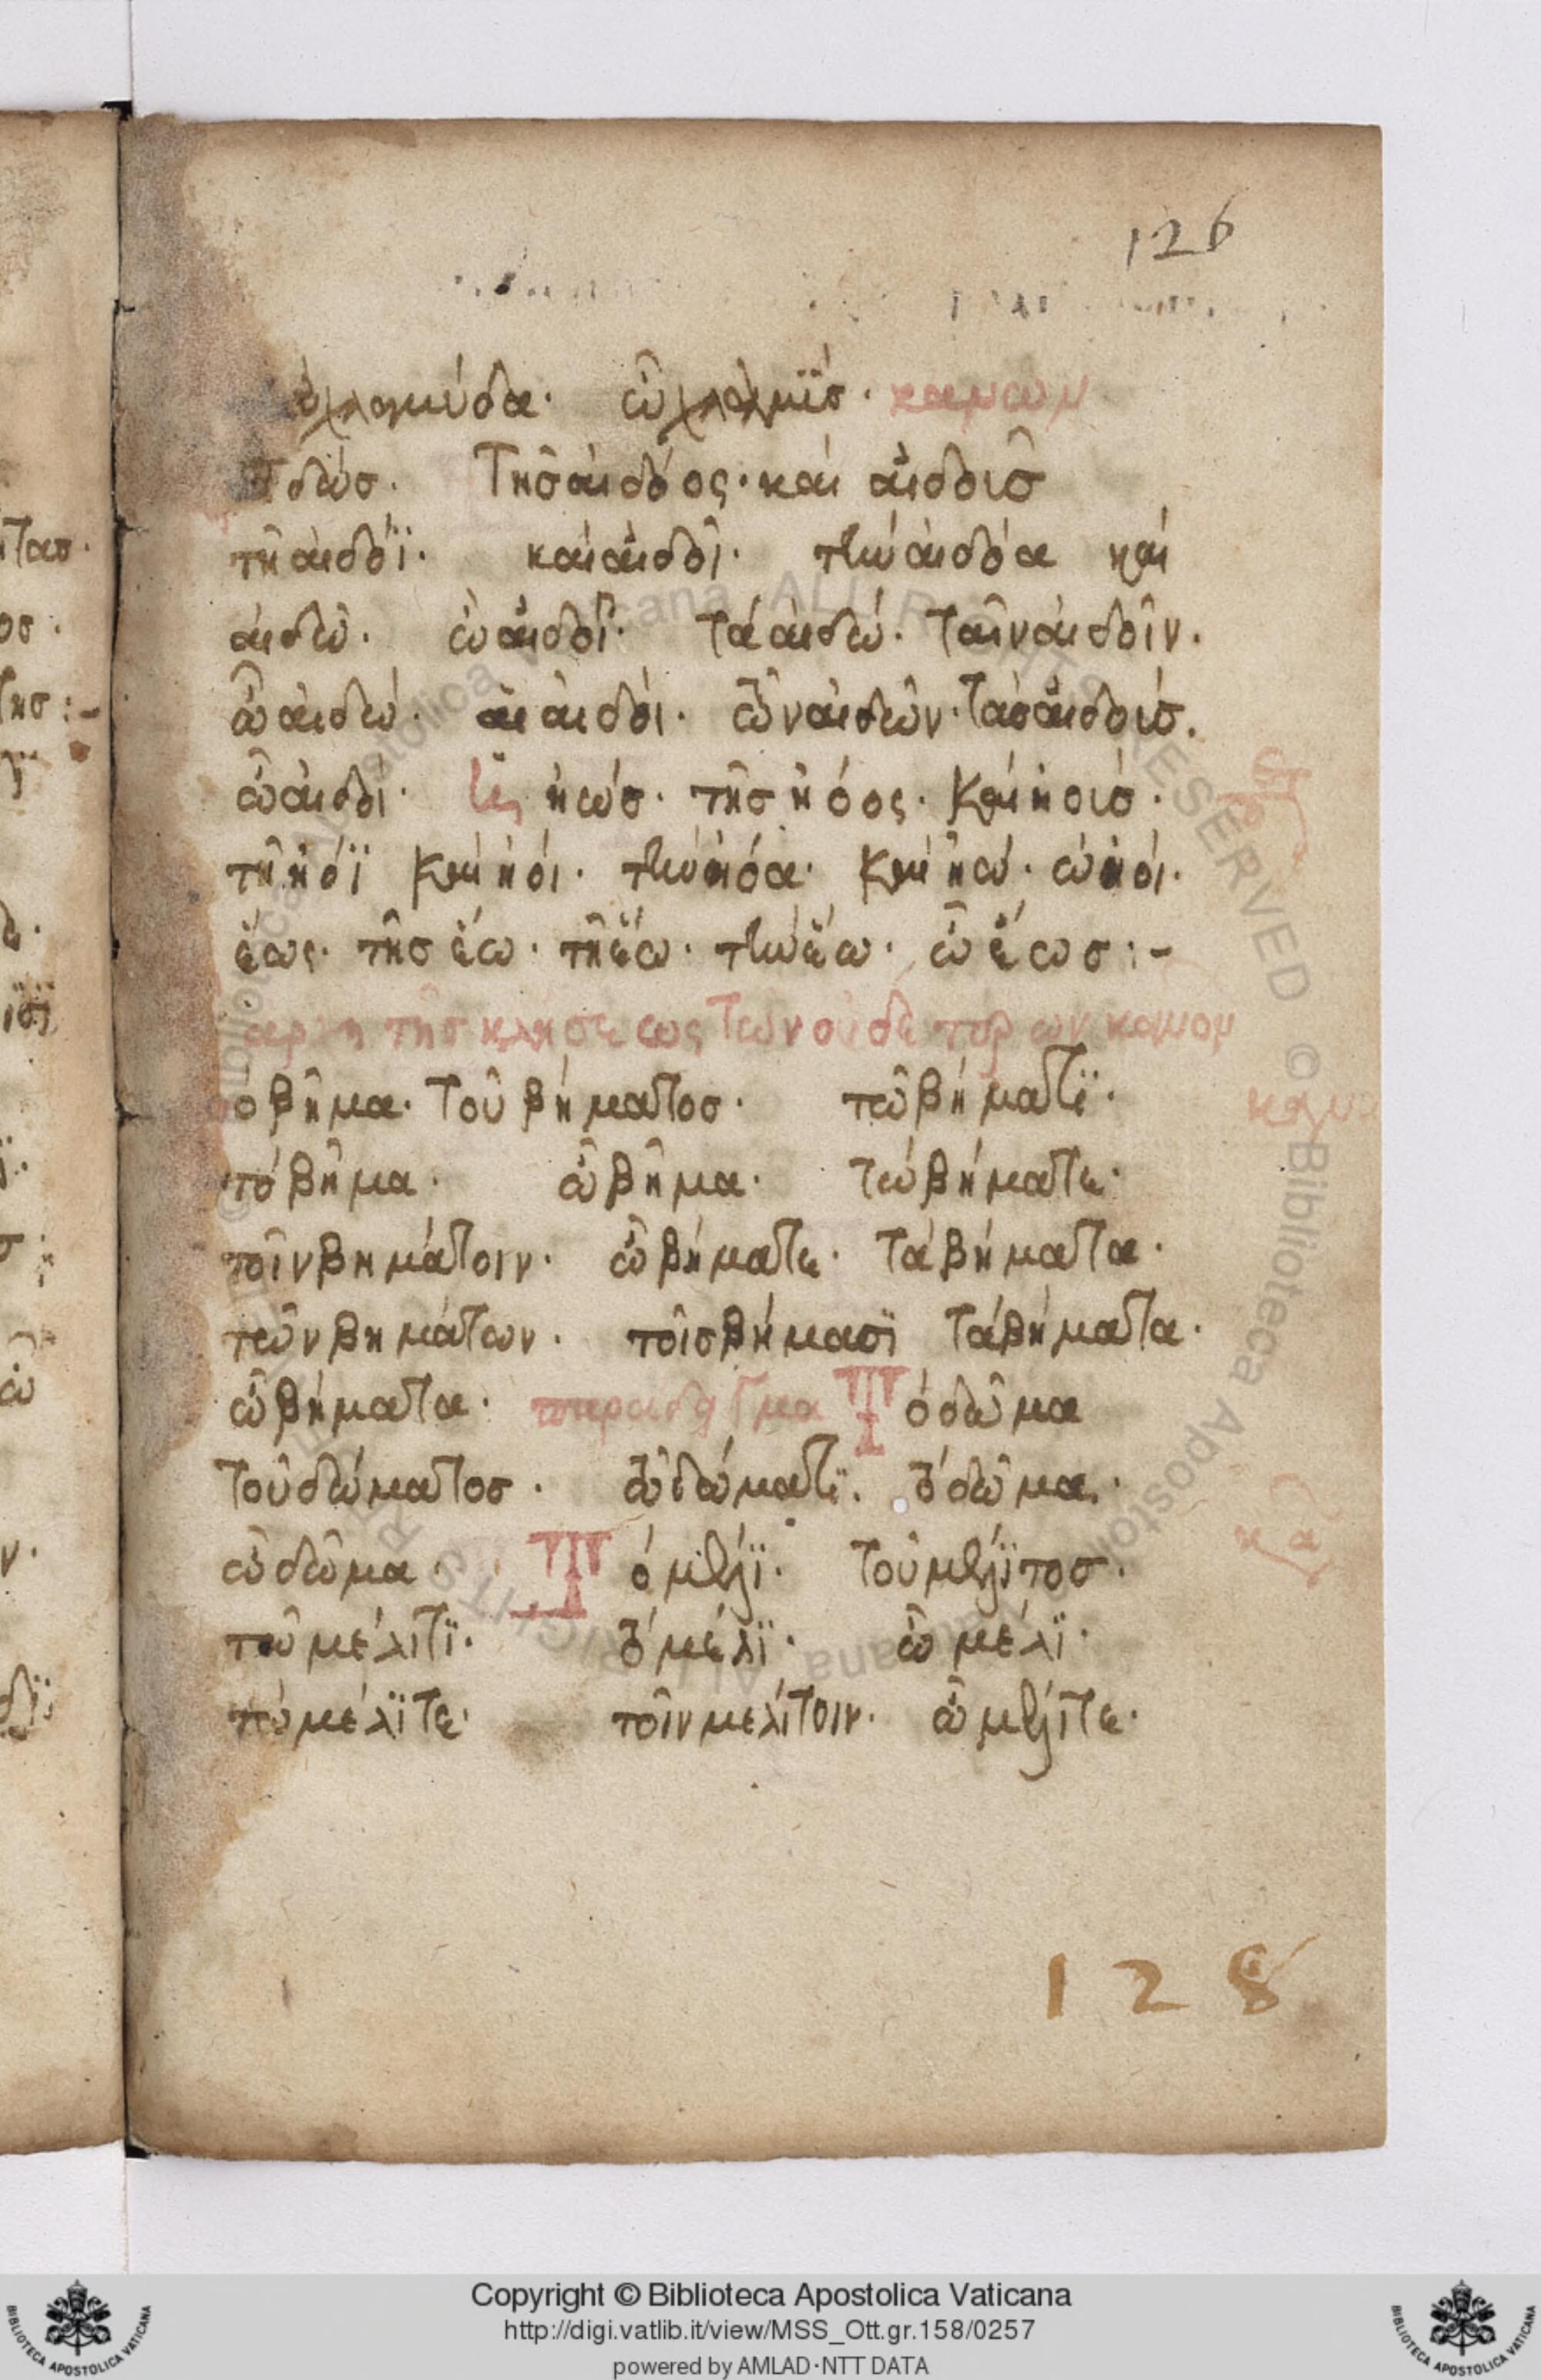 126
χλαμύδα· ὦ χλαμΰσ· κανων
ἰδώσ. Τῆσ αἰδόος· καὶ αἰδοῖσ
τῆ αἰδόϊ· καὶ αἰδοῖ· τὴν αἰδόα καὶ
αἰδῶ. ὦ αἰδοῖ· τὰ αἰδώ. ταῖν αἰδοῖν.
ὦ αἰδώ· αἱ αἰδοί· τῶν αἰδῶν· τὰσ αἰδοίσ.
ὦ αἰδοί· ἠώσ. τῆσ ἠόος. καὶ ἠοισ·
τῆ ἠόϊ καὶ ἠόι· τὴν ἠόα· καὶ ἠώ· ὦ ἠόι·
ἕως· τῆσ ἕω· τῆ ἕω· τὴν ἕω· ὦ ἕωσ:-
αρχη τῆσ κλήσεως τῶν οὐδετέρων κανον
ὸ βῆμα. Τοῦ βήματοσ· τῶ βήματϊ·
τὸ βῆμα· ὦ βῆμα· τὼ βήματε·
τοῖν βημάτοιν· ὦ βήματε· τὰ βήματα·
τῶν βημάτων· τοῖσ βήμασϊ τὰ βήματα·
ὦ βήματα· παραδιγμα Τ ὸ δῶμα
Τοῦ δώματοσ· τῶ δώματϊ· τὸ δῶμα·
ὦ δῶμα· Τ ὸ μέλϊ· Τοῦ μέλϊτοσ·
τῶ μέλιτϊ· τὸ μέλϊ· ὦ μέλϊ·
τὼ μέλϊτε· τοῖν μελίτοιν· ὦ μέλϊτε·
128
Copyright © Biblioteca Apostolica Vaticana
http://digi.vatlib.it/view/MSS_Ott.gr.158/0257
powered by AMLAD·NTT DATA